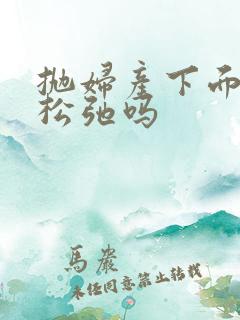 抛妇产下而
松弛吗
馬嚴
未经同意禁止转载